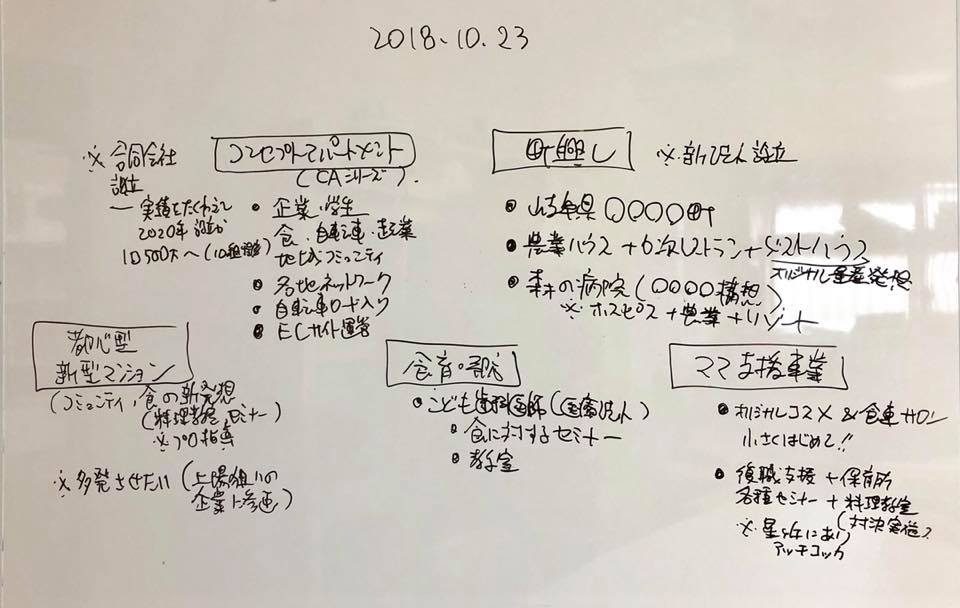 2018.10.23
※合同会社
設立
コンセプトアパートメント
(CAシリーズ)
― 実績をたくわえて
2020年
1口500万へ
● 企業・学生
食・自転車・起業
地域コミュニティ
● 各地ネットワーク
● 自転車ロード入り
● ECサイト運営
町興し
※新法人設立
● 岐阜県〇〇〇〇町
● 農業ハウス+6次レストラン+ゲストハウス
オリジナル量産発想
● 森の病院(〇〇〇〇構想)
※ホスピス+農業+リゾート
都心型
新型マンション
(コミュニティ、食の新発想
(料理教室、セミナー
※プロ指導
※多発させたい(上場狙いの
企業に参画)
食育・
● こども歯科医師(医療法人)
● 食に対するセミナー
● 教室
ママ支援事業
● オリジナルコスメ&食事サロン
小さくはじめて!!
● 復職支援+保育所
各種セミナー+料理教室
※